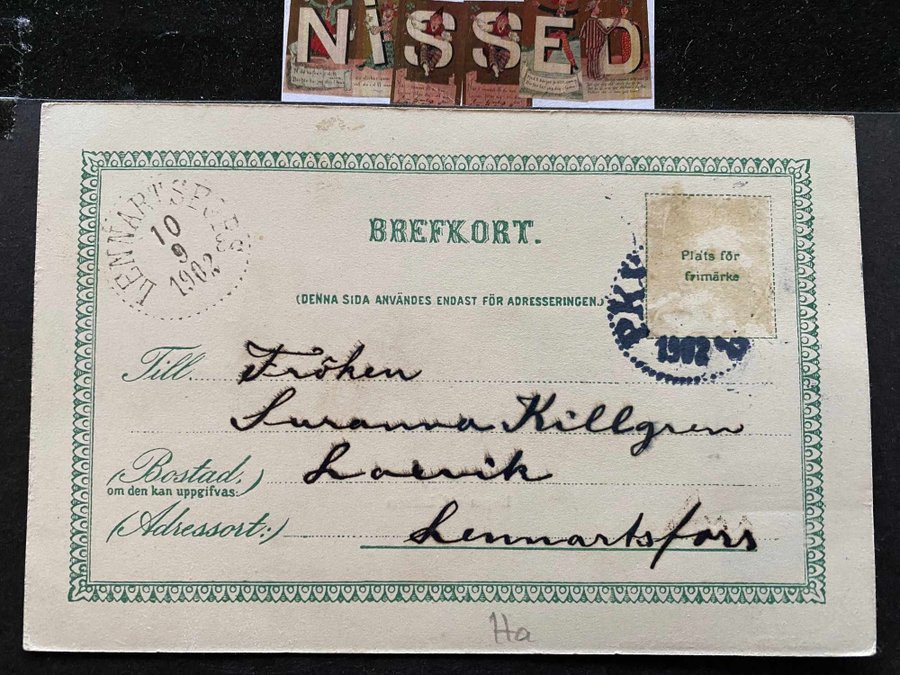 NISSED
BREFKORT.
LENNARTSFORS
10
9
1902
Plats för
frimärke
(DENNA SIDA ANVÄNDES ENDAST FÖR ADRESSERINGEN.)
PKP
1902
Till
Fröken
Susanna Killgren
(Bostad,
om den kan uppgifvas:)
Loevik
(Adressort:)
Lennartsfors
Ha